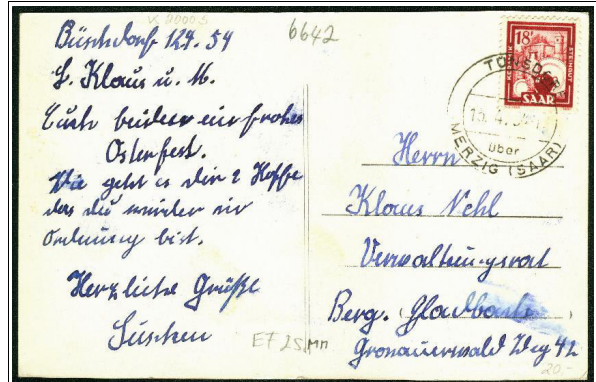 K 2000 S
6642
Büschdorf 12 4. 54
L. Klaus u. M.
Euch beiden ein frohes
Osterfest.
Wie geht es Dir? Hoffe
das du wieder in
Ordnung bist.
Herzliche Grüße
Suschen
EF 25 Mn
18F
KERAMIK
STEINGUT
SAAR
TÜNSDORF
über
MERZIG (SAAR)
Herrn
Klaus Nehl
Verwaltungsrat
Berg. Gladbach
Gronauerwald Weg 42
20.-